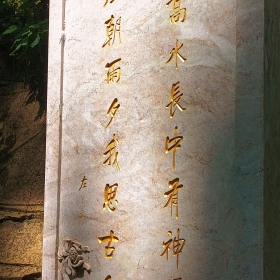 高水長中有神
朝雨夕我思古
左